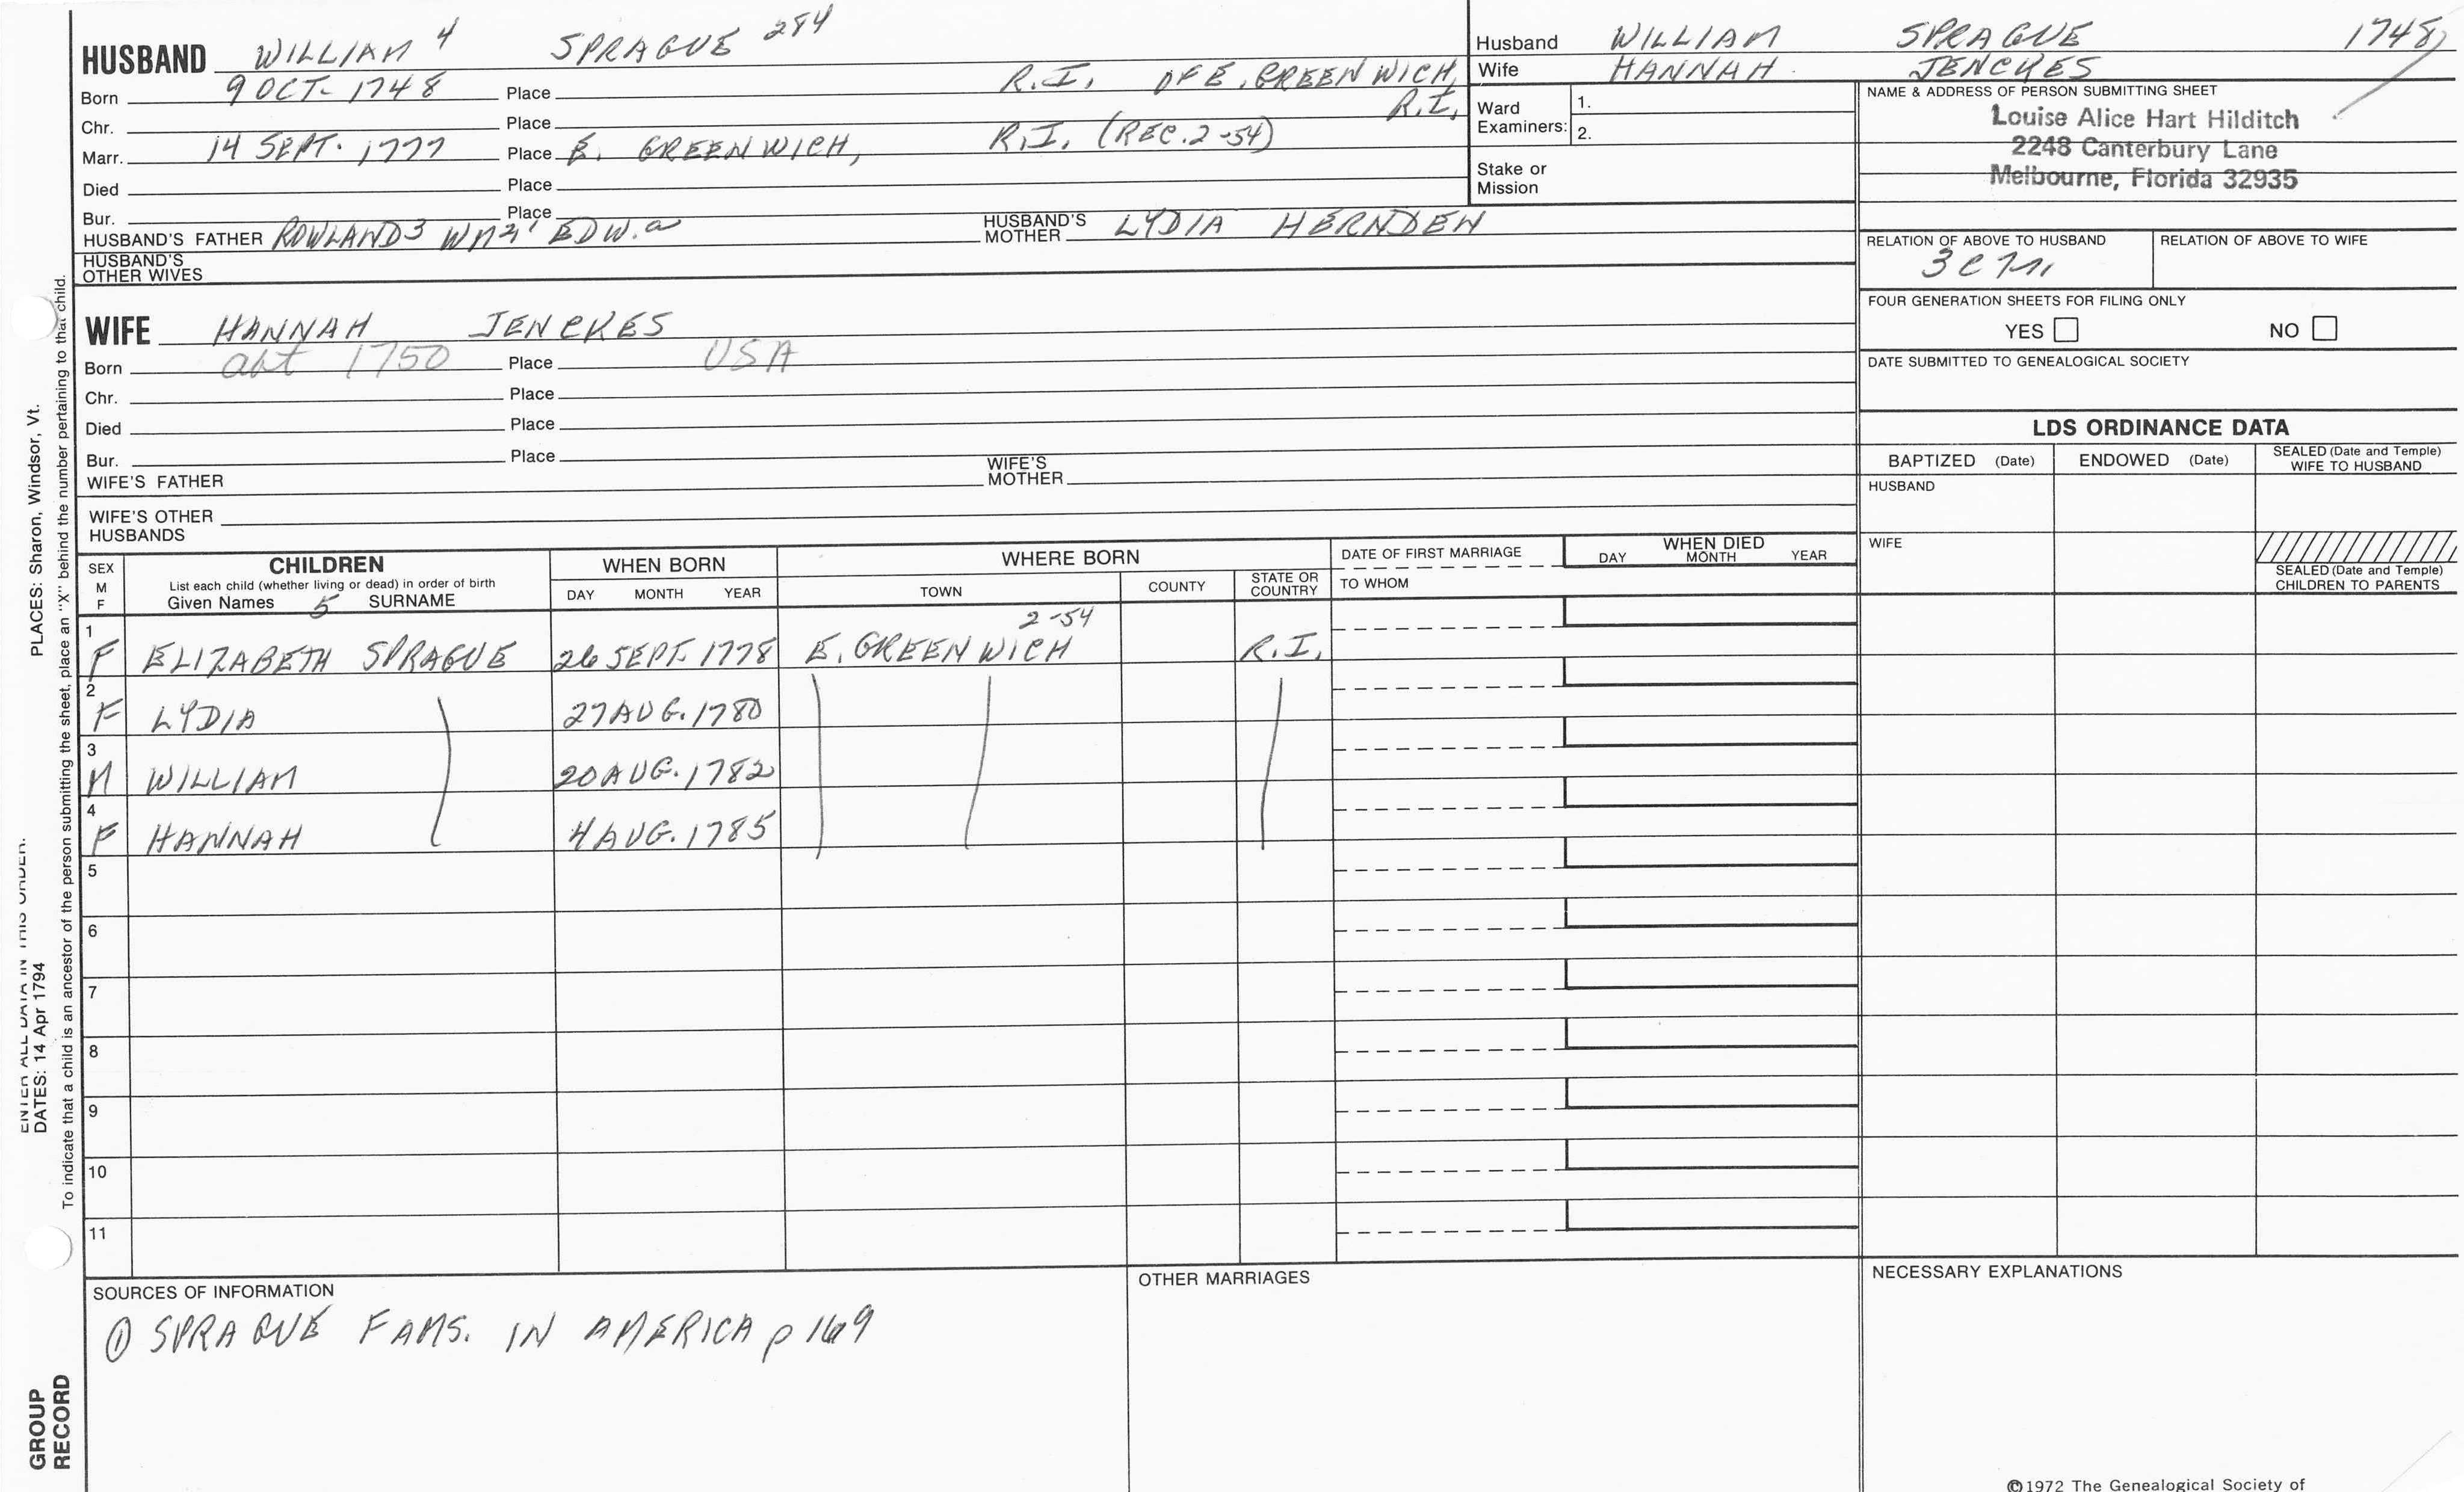 HUSBAND WILLIAM 4 SPRAGUE 284
Born 9 OCT. 1748 Place R.I. OF E. GREENWICH, R.I.
Chr. Place
Marr. 14 SEPT. 1777 Place E. GREENWICH, R.I. (REC. 2-54)
Died Place
Bur. Place
HUSBAND'S FATHER ROWLAND3 WM2 EDW. HUSBAND'S MOTHER LYDIA HERNDEN
HUSBAND'S OTHER WIVES
WIFE HANNAH JENCKES
Born abt 1750 Place USA
Chr. Place
Died Place
Bur. Place
WIFE'S FATHER WIFE'S MOTHER
WIFE'S OTHER HUSBANDS
Husband WILLIAM SPRAGUE 1748
Wife HANNAH JENCKES
Ward Examiners: 1.
2.
Stake or Mission
NAME & ADDRESS OF PERSON SUBMITTING SHEET
Louise Alice Hart Hilditch
2248 Canterbury Lane
Melbourne, Florida 32935
RELATION OF ABOVE TO HUSBAND RELATION OF ABOVE TO WIFE
3C
FOUR GENERATION SHEETS FOR FILING ONLY
YES NO
DATE SUBMITTED TO GENEALOGICAL SOCIETY
LDS ORDINANCE DATA
BAPTIZED (Date) ENDOWED (Date) SEALED (Date and Temple) WIFE TO HUSBAND
HUSBAND
WIFE
SEALED (Date and Temple) CHILDREN TO PARENTS
SEX M F
CHILDREN
List each child (whether living or dead) in order of birth
Given Names 5 SURNAME
WHEN BORN
DAY MONTH YEAR
WHERE BORN
TOWN COUNTY STATE OR COUNTRY
DATE OF FIRST MARRIAGE
TO WHOM
WHEN DIED
DAY MONTH YEAR
2-54
1 F ELIZABETH SPRAGUE 26 SEPT. 1778 E. GREENWICH R.I.
2 F LYDIA 27 AUG. 1780
3 M WILLIAM 20 AUG. 1782
4 F HANNAH 4 AUG. 1785
5
6
7
8
9
10
11
SOURCES OF INFORMATION
① SPRAGUE FAMS. IN AMERICA p 169
OTHER MARRIAGES
NECESSARY EXPLANATIONS
©1972 The Genealogical Society of
ENTER ALL DATA IN THIS ORDER.
DATES: 14 Apr 1794 PLACES: Sharon, Windsor, Vt.
To indicate that a child is an ancestor of the person submitting the sheet, place an "X" behind the number pertaining to that child.
GROUP
RECORD